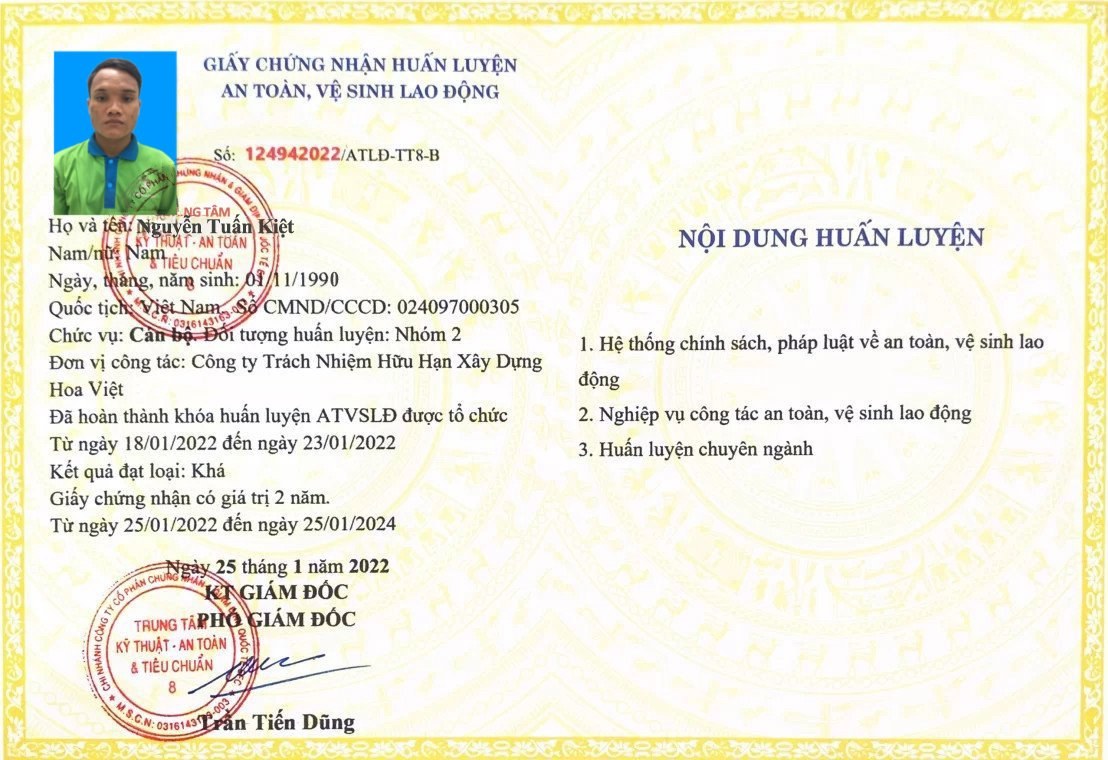 GIẤY CHỨNG NHẬN HUẤN LUYỆN
AN TOÀN, VỆ SINH LAO ĐỘNG
Số: 124942022/ATLĐ-TT8-B
Họ và tên: Nguyễn Tuấn Kiệt
Nam/nữ: Nam
Ngày, tháng, năm sinh: 01/11/1990
Quốc tịch: Việt Nam. Số CMND/CCCD: 024097000305
Chức vụ: Cán bộ. Đối tượng huấn luyện: Nhóm 2
Đơn vị công tác: Công ty Trách Nhiệm Hữu Hạn Xây Dựng
Hoa Việt
Đã hoàn thành khóa huấn luyện ATVSLĐ được tổ chức
Từ ngày 18/01/2022 đến ngày 23/01/2022
Kết quả đạt loại: Khá
Giấy chứng nhận có giá trị 2 năm.
Từ ngày 25/01/2022 đến ngày 25/01/2024
Ngày 25 tháng 1 năm 2022
KT GIÁM ĐỐC
PHÓ GIÁM ĐỐC
TRUNG TÂM
KỸ THUẬT - AN TOÀN
& TIÊU CHUẨN
8
Trần Tiến Dũng
NỘI DUNG HUẤN LUYỆN
1. Hệ thống chính sách, pháp luật về an toàn, vệ sinh lao
động
2. Nghiệp vụ công tác an toàn, vệ sinh lao động
3. Huấn luyện chuyên ngành